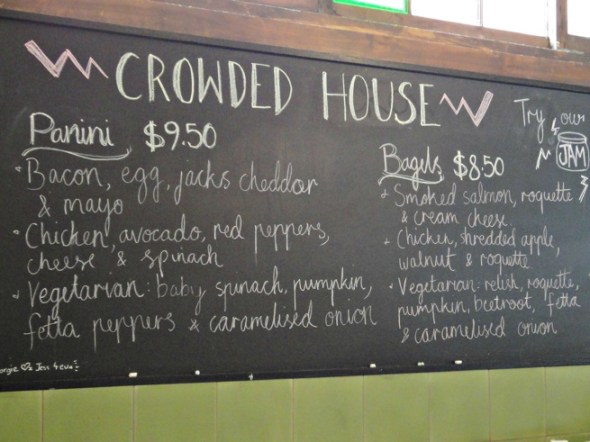 CROWDED HOUSE
Try our
JAM
Panini $9.50
Bacon, egg, jacks cheddar
& mayo
Chicken, avocado, red peppers,
cheese & spinach
Vegetarian: baby spinach, pumpkin,
fetta peppers & caramelised onion
Bagels $8.50
Smoked salmon, roquette
& cream cheese
Chicken, shredded apple,
walnut & roquette
Vegetarian: relish, roquette,
pumpkin, beetroot, fetta
& caramelised onion
Jess 4 eva